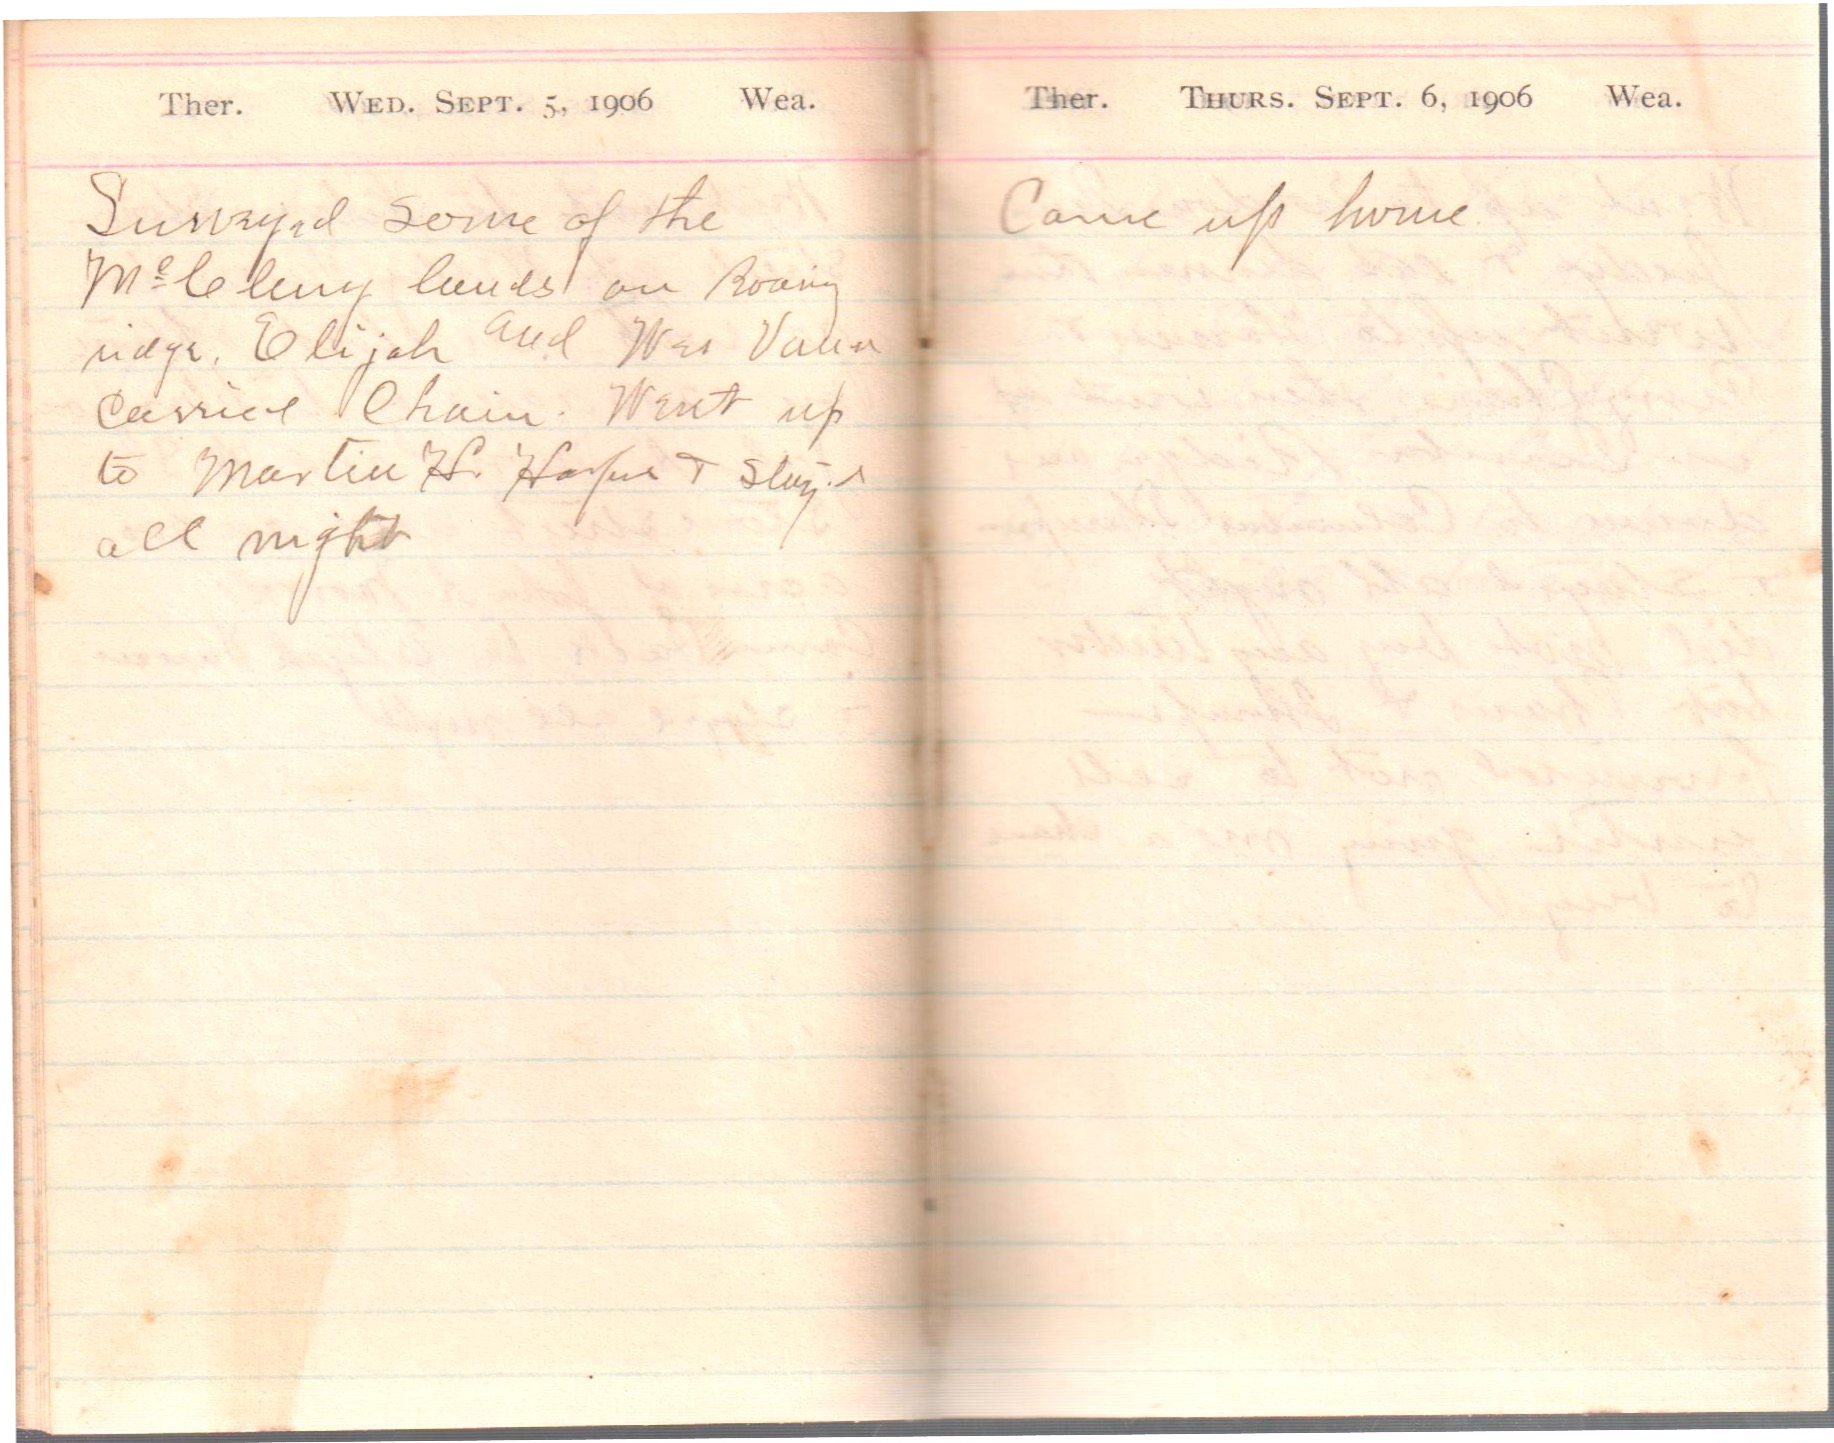 Ther. WED. SEPT. 5, 1906 Wea.
Surveyed some of the
McCleny lands on Roaring
ridge. Elijah and Wes Vaun
Carried Chain. Went up
to Martin H. Harper & stayed
all night
Ther. THURS. SEPT. 6, 1906 Wea.
Came up home.